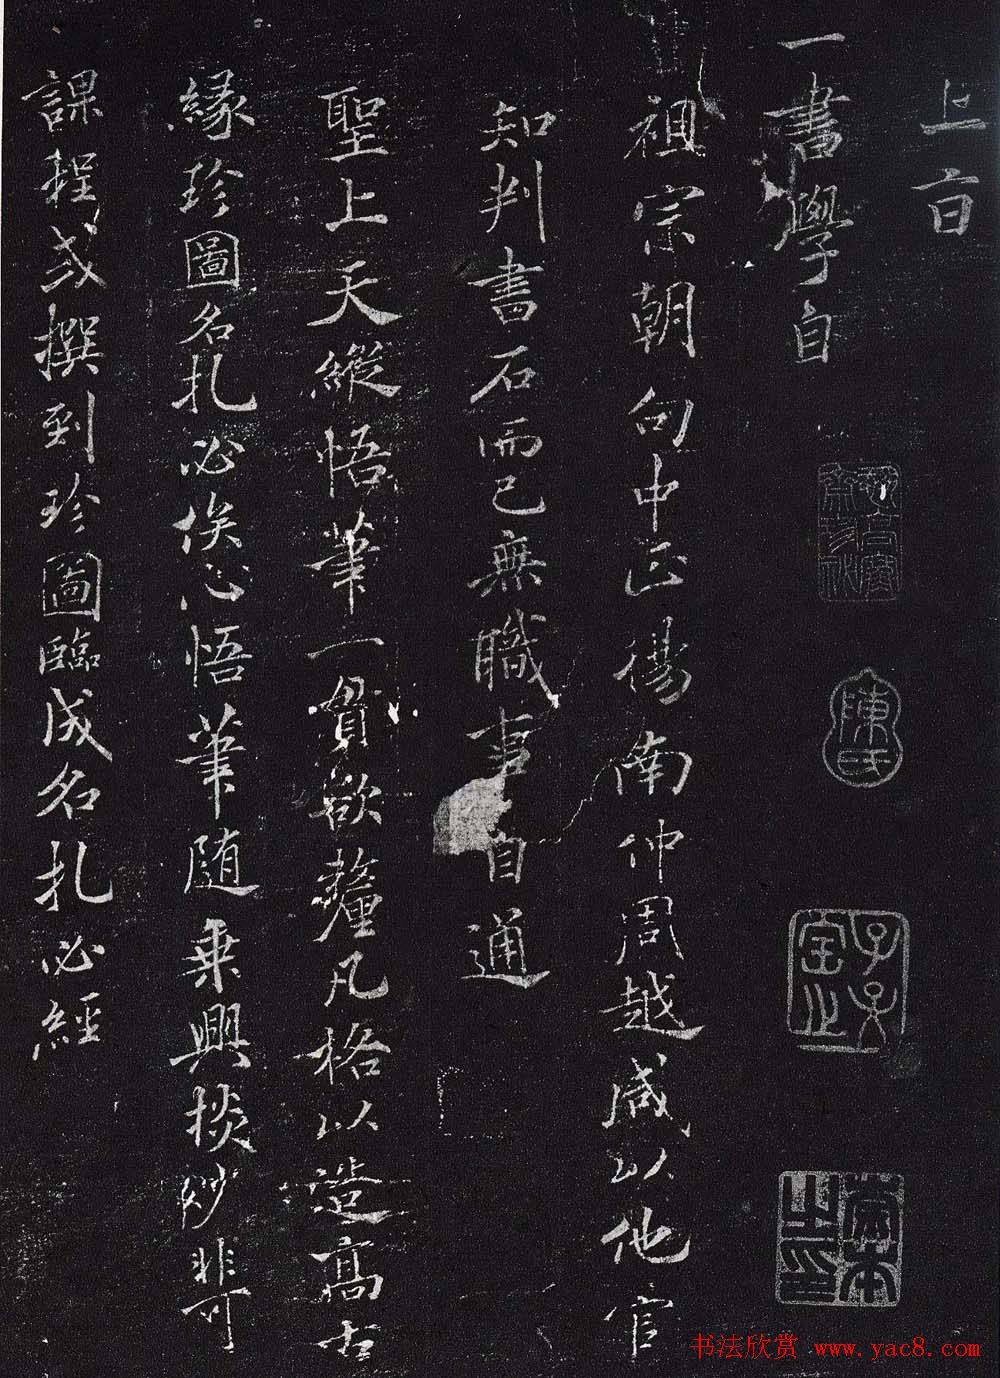 上言
一書學自
祖宗朝句中正楊南仲周越咸以他官
知判書石而已無職事自通
聖上天縱悟筆一貫欲釐凡格以造高古
緣珍圖名札必俟心悟筆隨乘興掞妙非可
課程或撰到珍圖臨成名札必經
陳氏
子子
宝之
书法欣赏 www.yac8.com